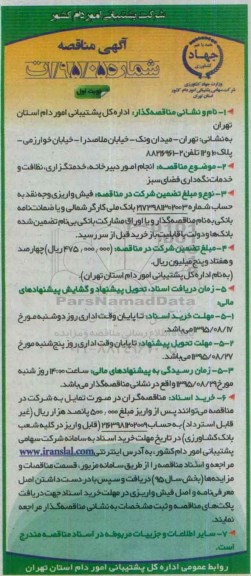 شرکت پشتیبانی امور دام کشور
جهاد
کشاورزی
وزارت جهاد کشاورزی
شرکت سهامی پشتیبانی امور دام کشور
استان تهران
آگهی مناقصه
شماره ۹۵/۰۵/ت
نوبت اول
۱- نام و نشانی مناقصه‌گذار: اداره کل پشتیبانی امور دام استان
تهران
به نشانی: تهران - میدان ونک - خیابان ملاصدرا - خیابان خوارزمی -
پلاک ۱۰ و ۱۲ تلفن
۲- موضوع مناقصه: انجام امور دبیرخانه، خدمتگزاری، نظافت و
خدمات نگهداری فضای سبز
۳- نوع و مبلغ تضمین شرکت در مناقصه: فیش واریزی وجه نقد به
حساب شماره بانک ملی کارگر شمالی و یا ضمانت‌نامه
بانکی به نام مناقصه‌گذار و یا اوراق مشارکت بانکی بی‌نام تضمین شده
بانک‌ها و دولت با قابلیت بازخرید قبل از سررسید.
۴- مبلغ تضمین شرکت در مناقصه: (۴۷۵,۰۰۰,۰۰۰ ریال) چهارصد
و هفتاد و پنج میلیون ریال.
(به نام اداره کل پشتیبانی امور دام استان تهران).
۵- زمان دریافت اسناد، تحویل پیشنهاد و گشایش پیشنهادهای
مالی:
۵-۱- مهلت خرید اسناد: تا پایان وقت اداری روز دوشنبه مورخ
۱۳۹۵/۰۸/۱۷ می‌باشد.
۵-۲- مهلت تحویل پیشنهاد: تا پایان وقت اداری روز پنجشنبه مورخ
۱۳۹۵/۰۸/۲۷ می‌باشد.
۵-۳- زمان رسیدگی به پیشنهادهای مالی: ساعت ۱۴:۰۰ روز شنبه
مورخ ۱۳۹۵/۰۸/۲۹ واقع در نشانی مناقصه‌گذار می‌باشد.
۶- خرید اسناد: مناقصه‌گران در صورت تمایل به شرکت در
مناقصه می‌توانند پس از واریز مبلغ ۵۰۰,۰۰۰ پانصد هزار ریال (غیر
قابل استرداد) به حساب (قابل واریز در کلیه شعب
بانک کشاورزی) در تاریخ مهلت خرید اسناد به سامانه شرکت سهامی
پشتیبانی امور دام کشور، به آدرس اینترنتی www.iranslal.com
مراجعه و اسناد مناقصه را از طریق سامانه مزبور، قسمت مناقصات و
مزایده‌ها (بخش سال ۹۵) دریافت و سپس با در دست داشتن اصل
معرفی‌نامه و اصل فیش واریزی در مهلت خرید اسناد جهت دریافت
پاکت‌های مناقصه و ثبت مشخصات به نشانی مناقصه‌گذار مراجعه
نمایند.
۷- سایر اطلاعات و جزییات مربوطه در اسناد مناقصه مندرج
است.
روابط عمومی اداره کل پشتیبانی امور دام استان تهران